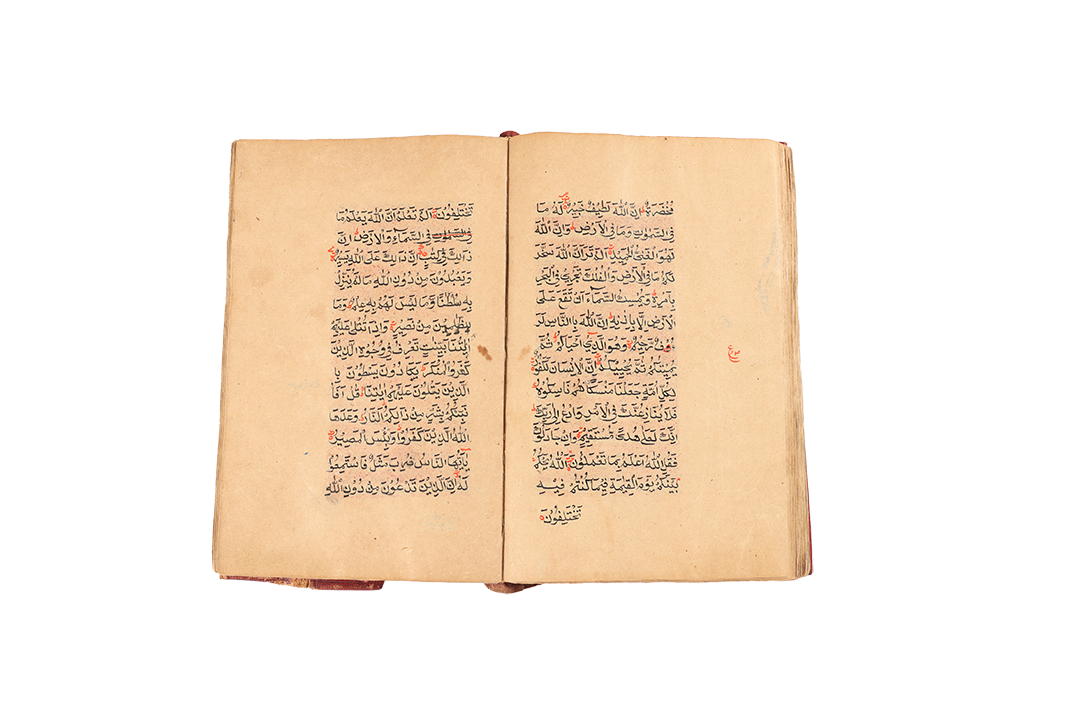 مُخْضَرَّةً اِنَّ اللّٰهَ لَطِيْفٌ خَبِيْرٌ لَهٗ مَا
فِي السَّمٰوٰتِ وَمَا فِي الْاَرْضِ وَاِنَّ اللّٰهَ
لَهُوَ الْغَنِيُّ الْحَمِيْدُ اَلَمْ تَرَ اَنَّ اللّٰهَ سَخَّرَ
لَكُمْ مَا فِي الْاَرْضِ وَالْفُلْكَ تَجْرِيْ فِي الْبَحْرِ
بِاَمْرِهٖ وَيُمْسِكُ السَّمَآءَ اَنْ تَقَعَ عَلَى
الْاَرْضِ اِلَّا بِاِذْنِهٖ اِنَّ اللّٰهَ بِالنَّاسِ لَرَ
ءُوْفٌ رَحِيْمٌ وَهُوَ الَّذِيْ اَحْيَاكُمْ ثُمَّ
يُمِيْتُكُمْ ثُمَّ يُحْيِيْكُمْ اِنَّ الْاِنْسَانَ لَكَفُوْرٌ
لِكُلِّ اُمَّةٍ جَعَلْنَا مَنْسَكًا هُمْ نَاسِكُوْهُ
فَلَا يُنَازِعُنَّكَ فِي الْاَمْرِ وَادْعُ اِلٰى رَبِّكَ
اِنَّكَ لَعَلٰى هُدًى مُسْتَقِيْمٍ وَاِنْ جَادَلُوْكَ
فَقُلِ اللّٰهُ اَعْلَمُ بِمَا تَعْمَلُوْنَ اَللّٰهُ يَحْكُمُ
بَيْنَكُمْ يَوْمَ الْقِيٰمَةِ فِيْمَا كُنْتُمْ فِيْهِ
تَخْتَلِفُوْنَ
تَخْتَلِفُوْنَ اَلَمْ تَعْلَمْ اَنَّ اللّٰهَ يَعْلَمُ مَا
فِي السَّمٰوٰتِ فِي السَّمَآءِ وَالْاَرْضِ اِنَّ
ذَالِكَ فِيْ كِتٰبٍ اِنَّ ذَالِكَ عَلَى اللّٰهِ يَسِيْرٌ
وَيَعْبُدُوْنَ مِنْ دُوْنِ اللّٰهِ مَا لَمْ يُنَزِّلْ
بِهٖ سُلْطٰنًا وَمَا لَيْسَ لَهُمْ بِهٖ عِلْمٌ وَمَا
لِلظّٰلِمِيْنَ مِنْ نَصِيْرٍ وَاِذَا تُتْلٰى عَلَيْهِمْ
اٰيٰتُنَا بَيِّنٰتٍ تَعْرِفُ فِيْ وُجُوْهِ الَّذِيْنَ
كَفَرُوا الْمُنْكَرَ يَكَادُوْنَ يَسْطُوْنَ بِا
لَّذِيْنَ يَتْلُوْنَ عَلَيْهِمْ اٰيٰتِنَا قُلْ اَفَاُ
نَبِّئُكُمْ بِشَرٍّ مِنْ ذٰلِكُمُ النَّارُ وَعَدَهَا
اللّٰهُ الَّذِيْنَ كَفَرُوْا وَبِئْسَ الْمَصِيْرُ
يٰاَيُّهَا النَّاسُ ضُرِبَ مَثَلٌ فَاسْتَمِعُوْا
لَهٗ اِنَّ الَّذِيْنَ تَدْعُوْنَ مِنْ دُوْنِ اللّٰهِ